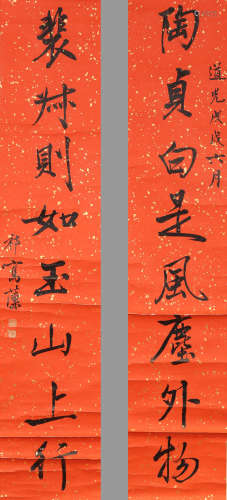 陶貞白是風塵外物
道光戊戌六月
裴妹則如玉山上行
祁寯藻